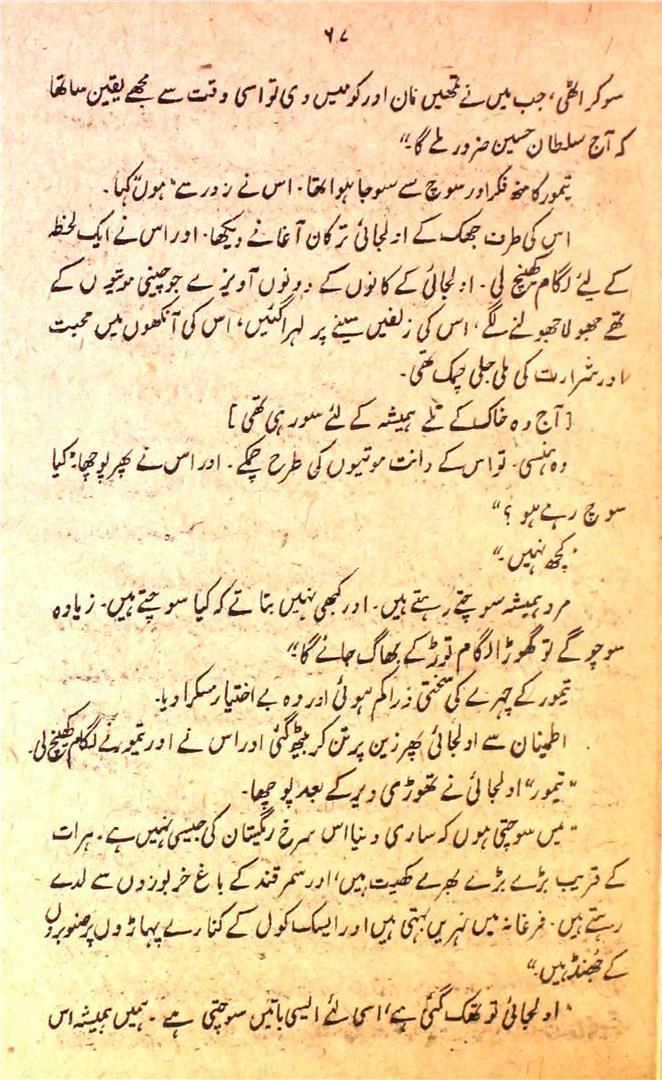 ۶۷
سو کر اٹھی، جب میں نے تمھیں نان اور کومیس دی تو اسی وقت سے مجھے یقین سا تھا
کہ آج سلطان حسین ضرور ملے گا۔"
تیمور کا منھ فکر اور سوچ سے سوجا ہوا تھا۔ اس نے زور سے "ہوں" کہا۔
اس کی طرف جھک کے اولجائی ترکان آغا نے دیکھا۔ اور اس نے ایک لحظہ
کے لیئے لگام کھینچ لی۔ اولجائی کے کانوں کے دونوں آویزے جو چینی موتیوں کے
تھے جھولا جھولنے لگے، اس کی زلفیں سینے پر لہرا گئیں، اس کی آنکھوں میں محبت
اور شرارت کی ملی جلی چمک تھی۔
[آج وہ خاک کے تلے ہمیشہ کے لئے سو رہی تھی]
وہ ہنسی۔ تو اس کے دانت موتیوں کی طرح چمکے۔ اور اس نے پھر پوچھا: "کیا
سوچ رہے ہو؟"
"کچھ نہیں۔"
مرد ہمیشہ سوچتے رہتے ہیں۔ اور کبھی نہیں بتاتے کہ کیا سوچتے ہیں۔ زیادہ
سوچو گے تو گھوڑا لگام توڑ کے بھاگ جائے گا۔"
تیمور کے چہرے کی سختی ذرا کم ہوئی اور وہ بے اختیار مسکرا دیا۔
اطمینان سے اولجائی پھر زین پر تن کر بیٹھ گئی اور اس نے اور تیمور نے لگام کھینچ لی۔
"تیمور" اولجائی نے تھوڑی دیر کے بعد پوچھا۔
"میں سوچتی ہوں کہ ساری دنیا اس سرخ ریگستان کی جیسی نہیں ہے۔ ہرات
کے قریب بڑے بڑے ہرے کھیت ہیں، اور سمرقند کے باغ خربوزوں سے لدے
رہتے ہیں۔ فرغانہ میں نہریں بہتی ہیں اور ایسک کول کے کنارے پہاڑوں پر صنوبروں
کے جھنڈ ہیں۔"
"اولجائی تو تھک گئی ہے، اسی لئے ایسی باتیں سوچتی ہے۔ ہمیں ہمیشہ اس